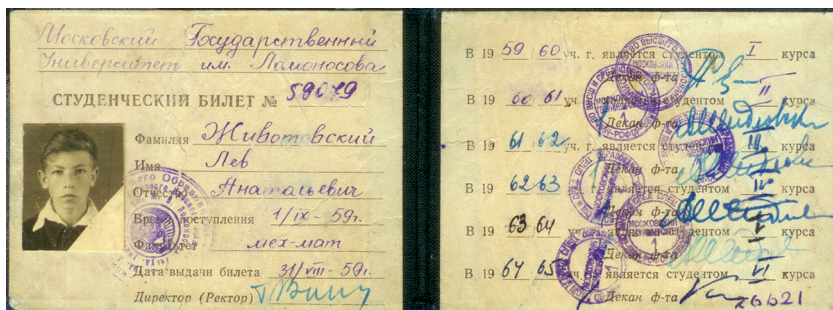 Московский Государственный
Университет им. Ломоносова
СТУДЕНЧЕСКИЙ БИЛЕТ № 59079
Фамилия Животовский
Имя Лев
Отчество Анатольевич
Время поступления 1/IX - 59г.
Факультет мех-мат
Дата выдачи билета 31/VIII - 59г.
Директор (Ректор)
В 19 59 60 уч. г. является студентом I курса
Декан ф-та
В 19 60 61 уч. г. является студентом II курса
Декан ф-та
В 19 61 62 уч. г. является студентом III курса
Декан ф-та
В 19 62 63 уч. г. является студентом IV курса
Декан ф-та
В 19 63 64 уч. г. является студентом V курса
Декан ф-та
В 19 64 65 уч. г. является студентом VI курса
Декан ф-та
26621